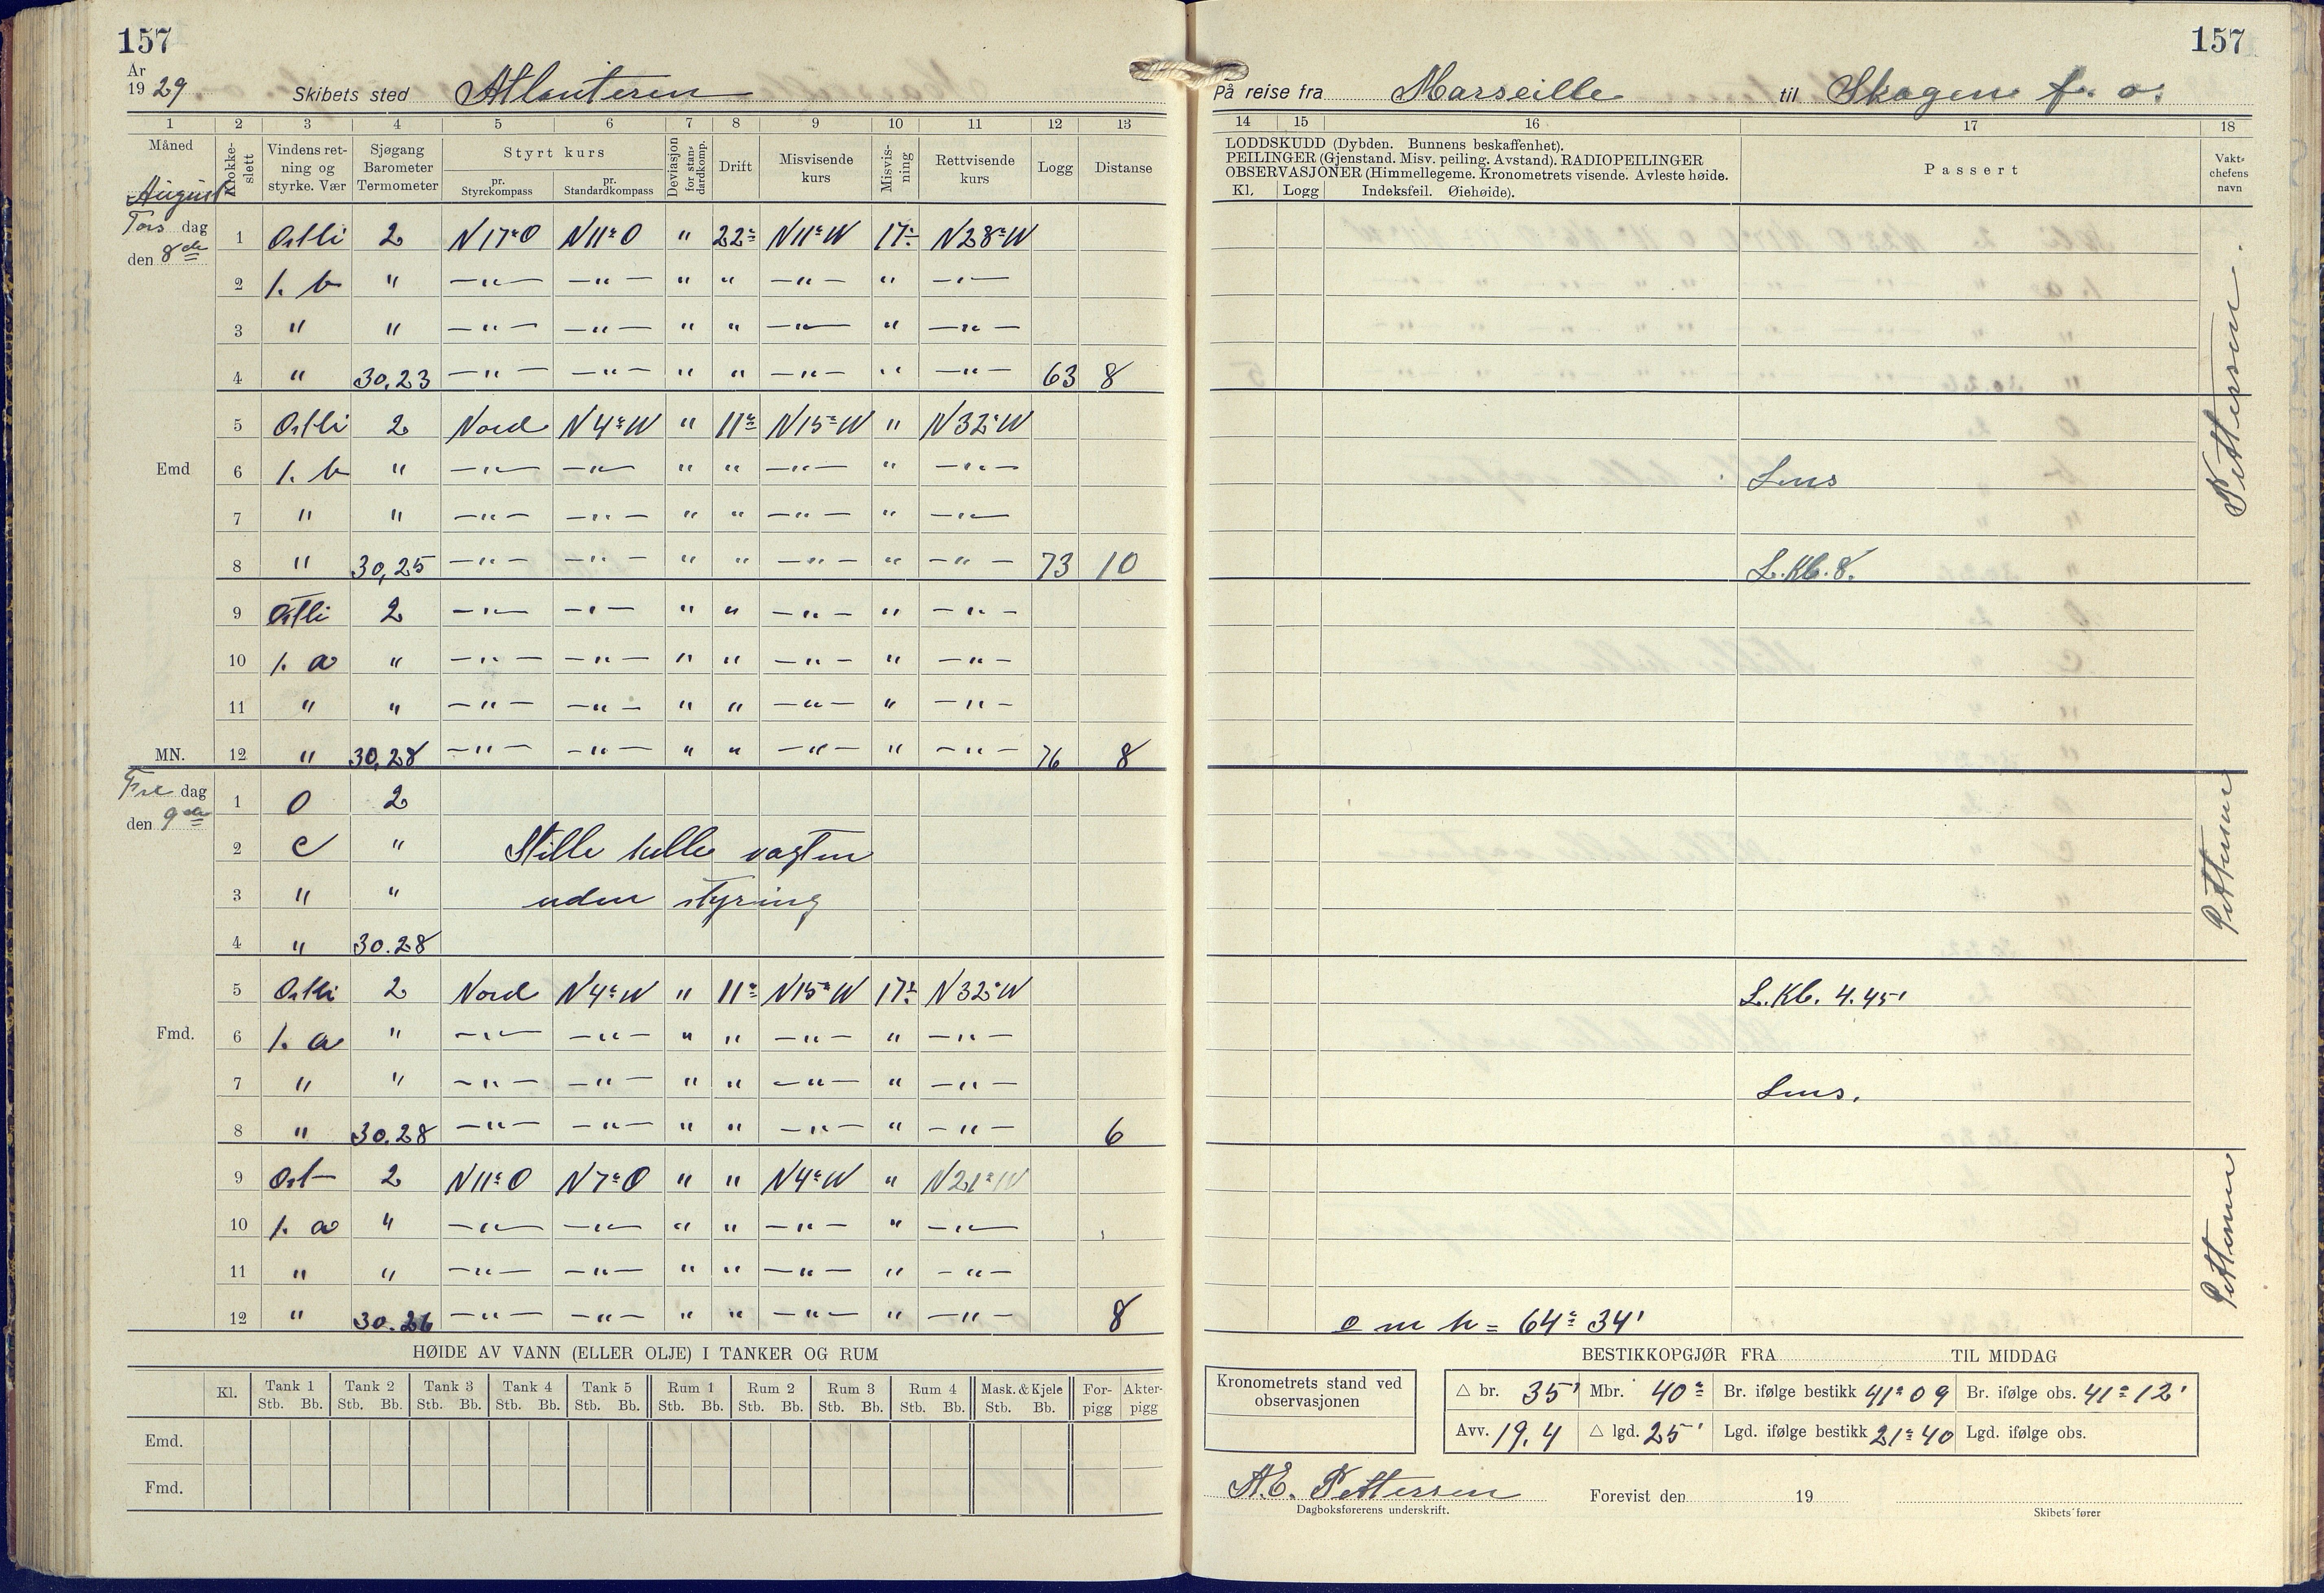 157
157
År
1929 Skibets sted Atlanteren
På reise fra Marseille til Skagen f. o.
1 2 3 4 5 6 7 8 9 10 11 12 13
14 15 16 17 18
Måned Klokkeslett Vindens retning og styrke. Vær Sjøgang Barometer Termometer Styrt kurs pr. Styrekompass pr. Standardkompass Deviasjon for standardkomp. Drift Misvisende kurs Misvisning Rettvisende kurs Logg Distanse
LODDSKUDD (Dybden. Bunnens beskaffenhet).
PEILINGER (Gjenstand. Misv. peiling. Avstand). RADIOPEILINGER
OBSERVASJONER (Himmellegeme. Kronometrets visende. Avleste høide.
Kl. Logg Indeksfeil. Øiehøide).
Passert
Vaktchefens navn
August
Tors dag
den 8de
1 Ostli 2 N17°O N11°O " 22° N11°W 17° N28°W
2 1. b " —"— —"— " " —"— " —"—
3 " " —"— —"— " " —"— " —"—
4 " 30,23 —"— —"— " " —"— " —"— 63 8
5 Ostli 2 Nord N4°W " 11° N15°W " N32°W
Emd 6 1. b " —"— —"— " " —"— " —"— Lens
7 " " —"— —"— " " —"— " —"—
8 " 30,25 —"— —"— " " —"— " —"— 73 10 L.Kl. 8.
Pettersen
9 Ostli 2 —"— —"— " " —"— " —"—
10 1. a " —"— —"— " " —"— " —"—
11 " " —"— —"— " " —"— " —"—
MN. 12 " 30,28 —"— —"— " " —"— " —"— 76 8
Fre dag
den 9de
1 0 2
2 c " Stille hele vagten
3 " " uden styring
4 " 30.28
Pettersen
5 Ostli 2 Nord N4°W " 11° N15°W 17° N32°W L.Kl. 4.45'
Fmd. 6 1. a " —"— —"— " " —"— " —"—
7 " " —"— —"— " " —"— " —"— Lens.
8 " 30.28 —"— —"— " " —"— " —"— 6
9 Ost 2 N11°O N7°O " " N4°W " N21°W
10 1. a " —"— —"— " " —"— " —"—
11 " " —"— —"— " " —"— " —"—
12 " 30.26 —"— —"— " " —"— " —"— 8 o m h = 64° 34'
Pettersen
HØIDE AV VANN (ELLER OLJE) I TANKER OG RUM
Kl. Tank 1 Tank 2 Tank 3 Tank 4 Tank 5 Rum 1 Rum 2 Rum 3 Rum 4 Mask. & Kjele For- Akter-
Stb. Bb. Stb. Bb. Stb. Bb. Stb. Bb. Stb. Bb. Stb. Bb. Stb. Bb. Stb. Bb. Stb. Bb. Stb. Bb. pigg pigg
Emd.
Fmd.
BESTIKKOPGJØR FRA TIL MIDDAG
Kronometrets stand ved
observasjonen
△ br. 35' Mbr. 40° Br. ifølge bestikk 41° 09 Br. ifølge obs. 41° 12'
Avv. 19,4 △ lgd. 25' Lgd. ifølge bestikk 21° 40 Lgd. ifølge obs.
A.E. Pettersen Forevist den 19
Dagboksførerens underskrift. Skibets fører